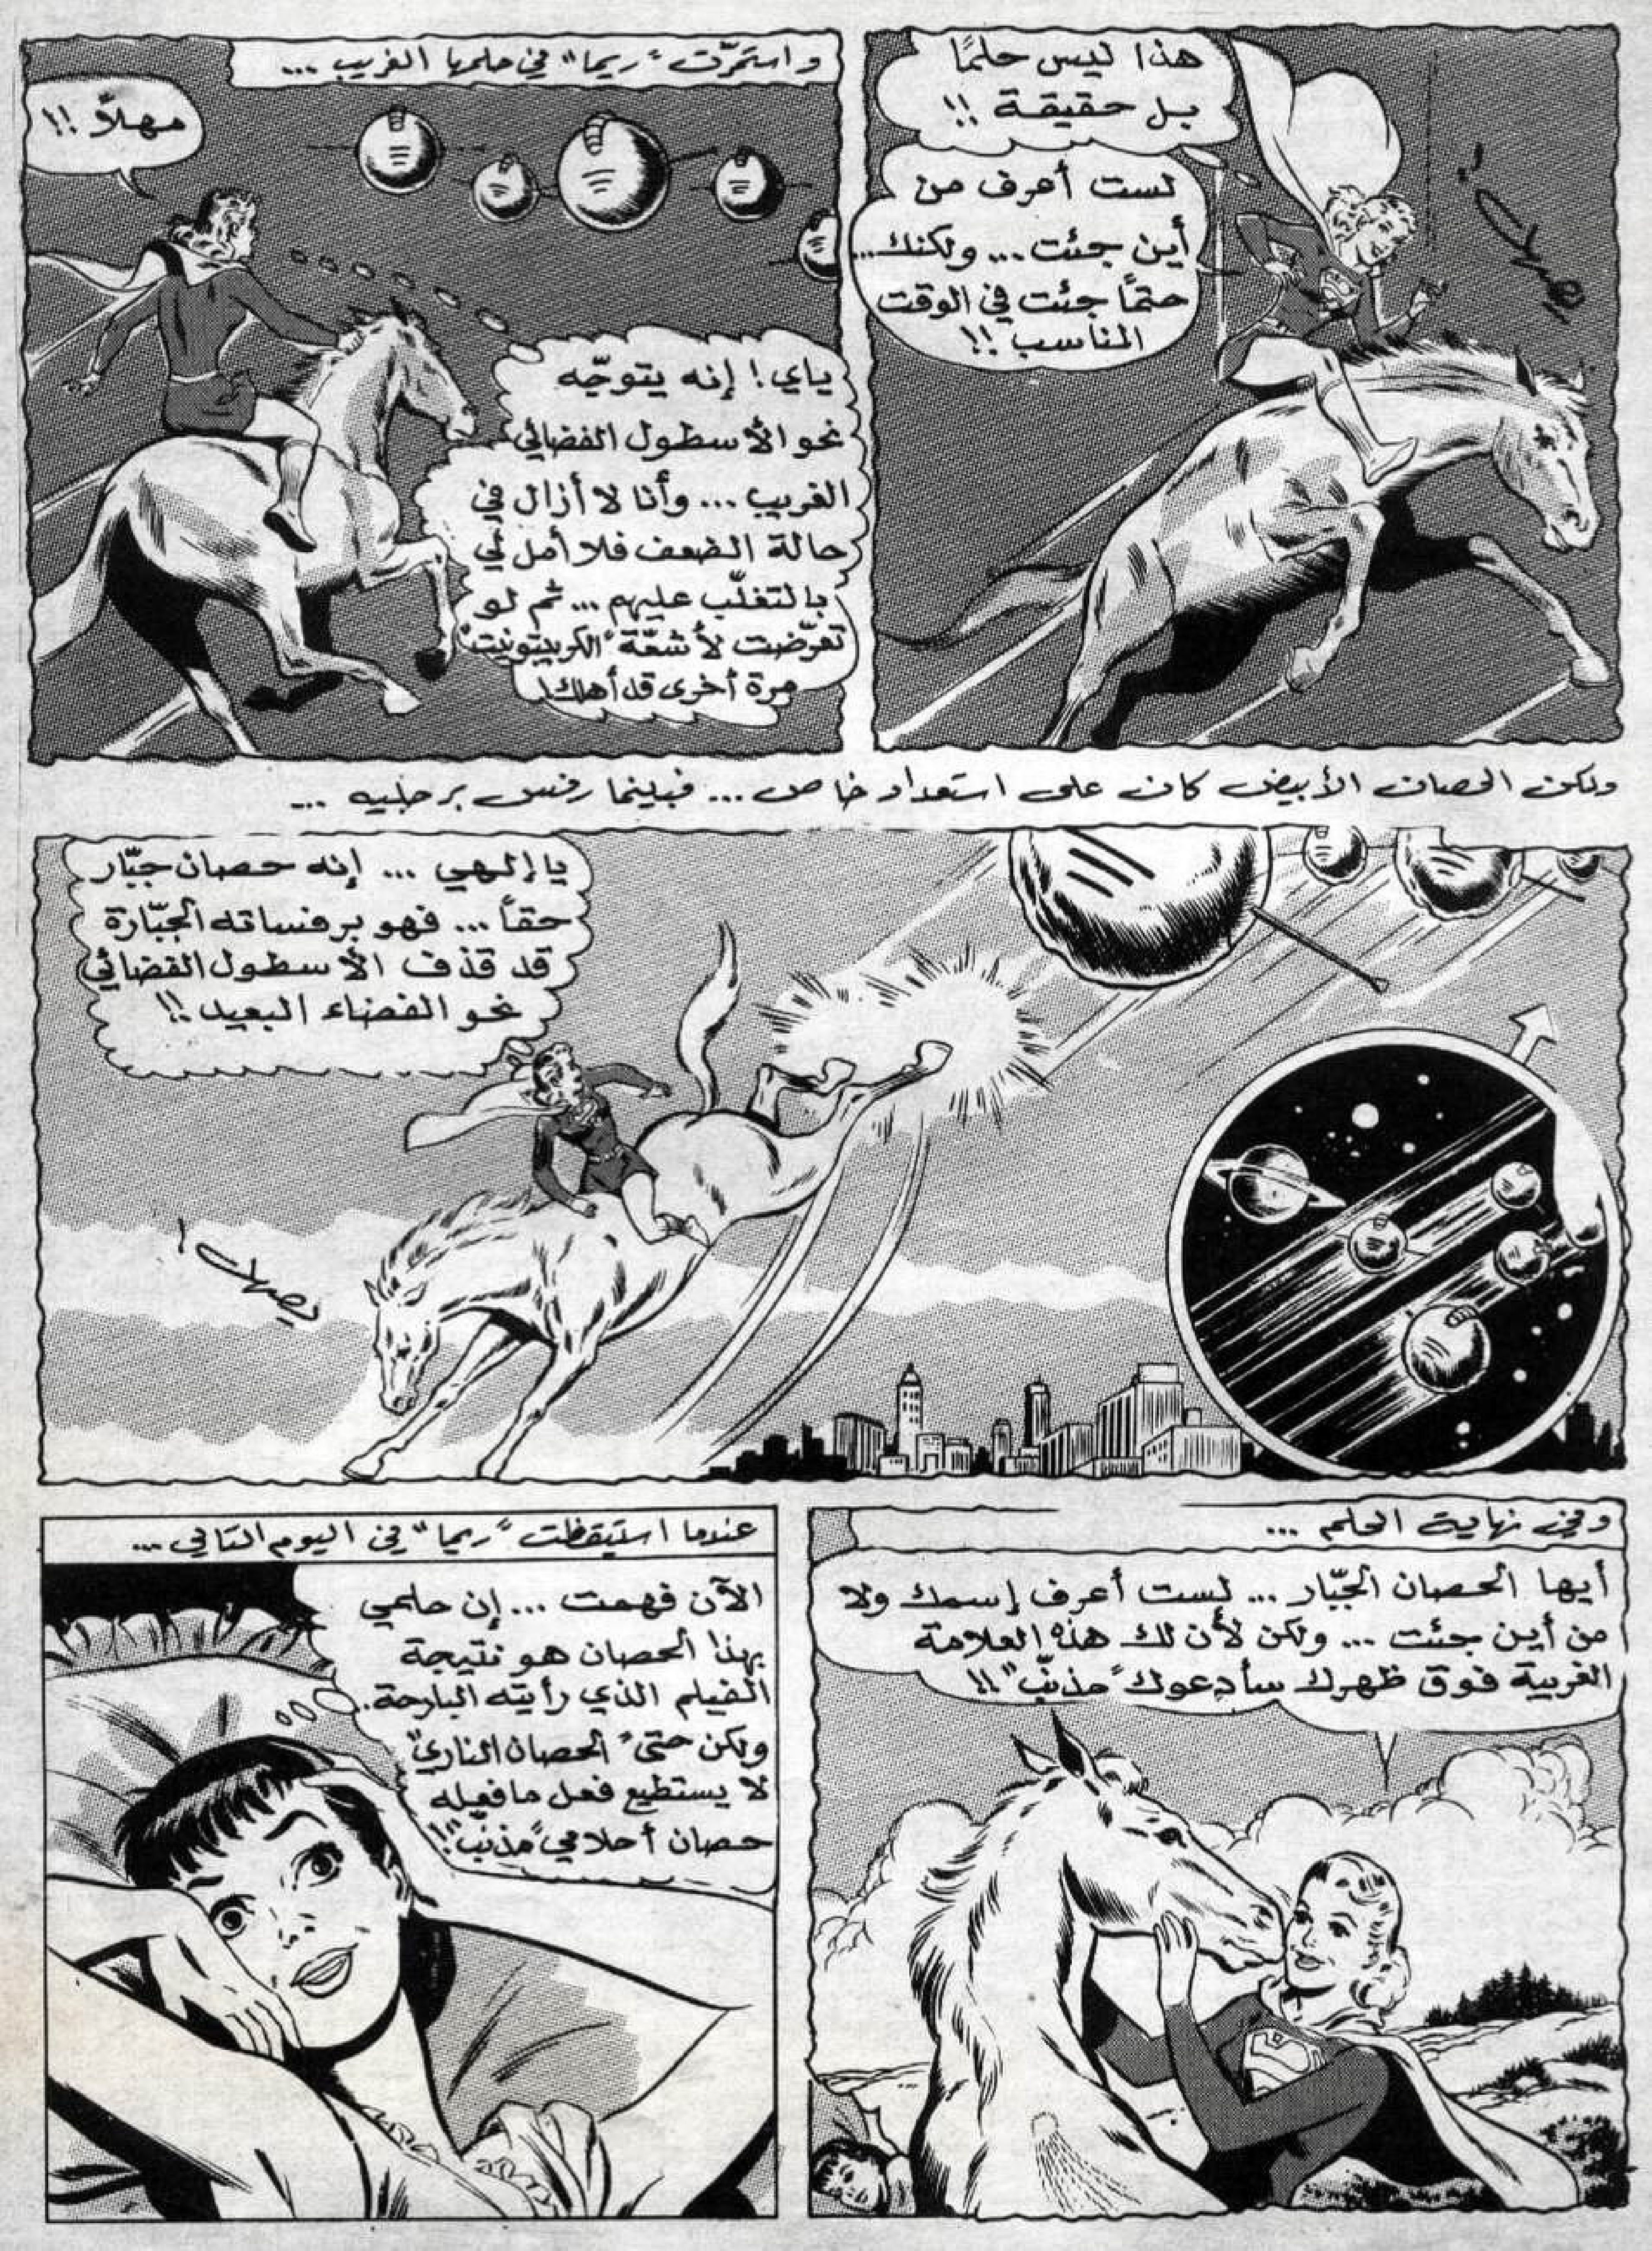 هذا ليس حلمًا
بل حقيقة !!
لست أعرف من
أين جئت... ولكنك...
حتمًا جئت في الوقت
المناسب !!
واستمرّت "ريما" في حلمها الغريب ...
مهلاً !!
ياي! إنه يتوجّه
نحو الأسطول الفضائي
الغريب ... وأنا لا أزال في
حالة الضعف فلا أمل لي
بالتغلّب عليهم ... ثم لو
تعرّضت لأشعّة "الكريبتونيت"
مرة أخرى قد أهلك!
ولكن الحصان الأبيض كان على استعداد خاص ... فبينما رفس برجليه ...
يا إلهي ... إنه حصان جبّار
حقاً ... فهو برفساته الجبّارة
قد قذف الأسطول الفضائي
نحو الفضاء البعيد !!
وفي نهاية الحلم ...
أيها الحصان الجبّار ... لست أعرف إسمك ولا
من أين جئت ... ولكن لأن لك هذه العلامة
الغريبة فوق ظهرك سأدعوك "مذنّب" !!
عندما استيقظت "ريما" في اليوم التالي ...
الآن فهمت ... إن حلمي
بهذا الحصان هو نتيجة
الفيلم الذي رأيته البارحة.
ولكن حتى "الحصان الناري"
لا يستطيع فعل ما فعله
حصان أحلامي "مذنّب" !!